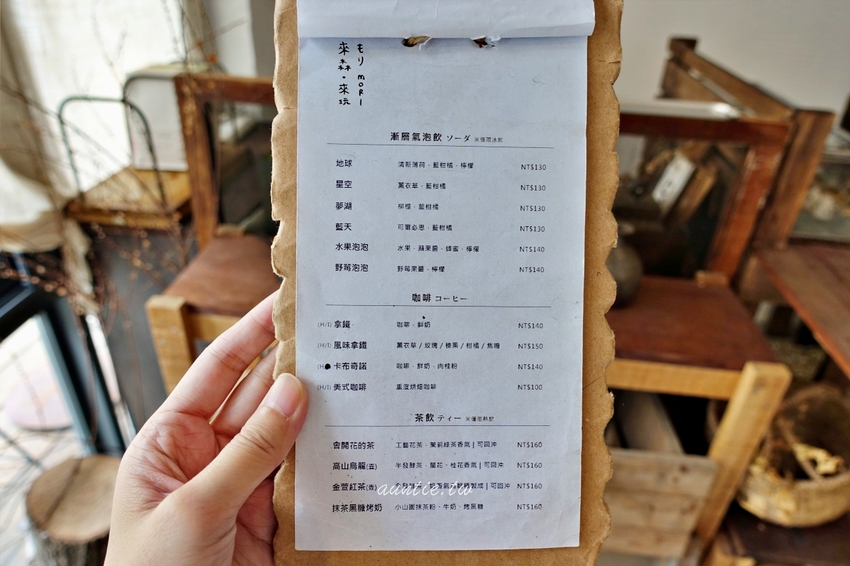 來森・來玩
もり MORI
漸層氣泡飲 ソーダ ※僅限冰飲
地球 清新薄荷・藍柑橘・檸檬 NT$130
星空 薰衣草・藍柑橘 NT$130
夢湖 柳橙・藍柑橘 NT$130
藍天 可爾必思・藍柑橘 NT$130
水果泡泡 水果・蘋果醬・蜂蜜・檸檬 NT$140
野莓泡泡 野莓果醬・檸檬 NT$140
咖啡 コーヒー
(H/I) 拿鐵 咖啡・鮮奶 NT$140
(H/I) 風味拿鐵 薰衣草/玫瑰/榛果/柑橘/焦糖 NT$150
(H 卡布奇諾 咖啡・鮮奶・肉桂粉 NT$140
(H/I) 美式咖啡 重度烘焙咖啡 NT$100
茶飲 ティー ※僅限熱飲
會開花的茶 工藝花茶・茉莉綠茶香氣 | 可回沖 NT$160
高山烏龍(壺) 半發酵茶・蘭花、桂花香氣 | 可回沖 NT$160
金萱紅茶(壺) 製成 | 可回沖 NT$160
抹茶黑糖烤奶 小山園抹茶粉・牛奶・烤黑糖 NT$160
auntie.tw